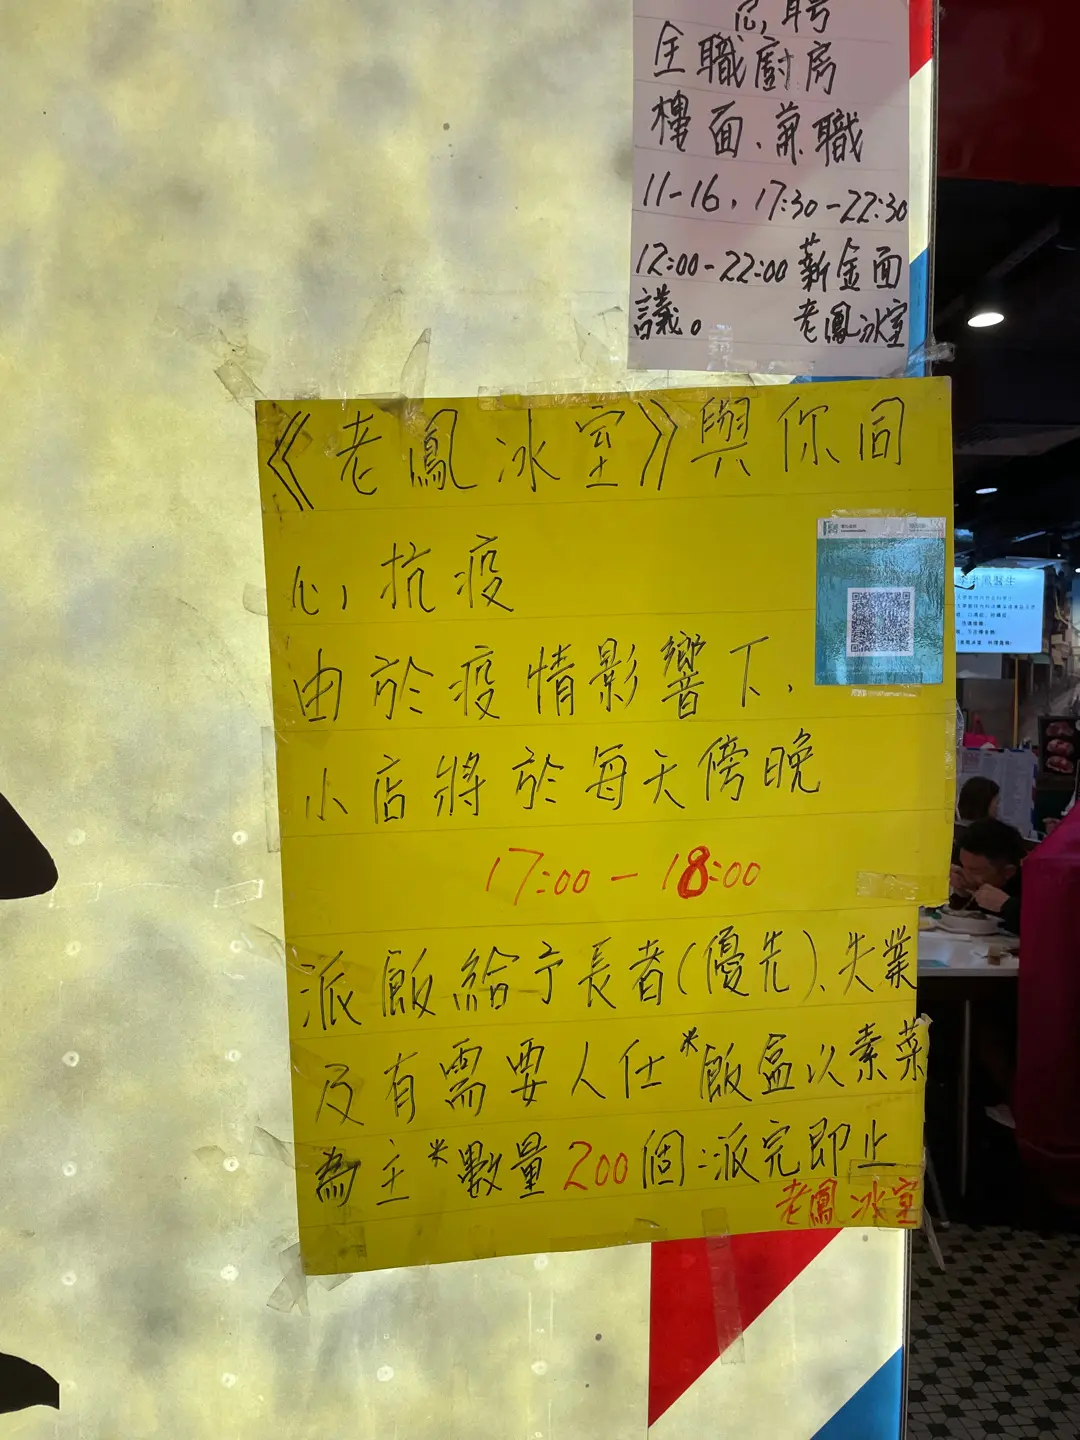 急聘
全職廚房
樓面、兼職
11-16，17:30-22:30
12:00-22:00 薪金面
議。 老鳳冰室
《老鳳冰室》與你同
心抗疫
由於疫情影響下，
小店將於每天傍晚
17:00-18:00
派飯給予長者(優先)、失業
及有需要人仕*飯盒以素菜
為主*數量200個:派完即止
老鳳冰室